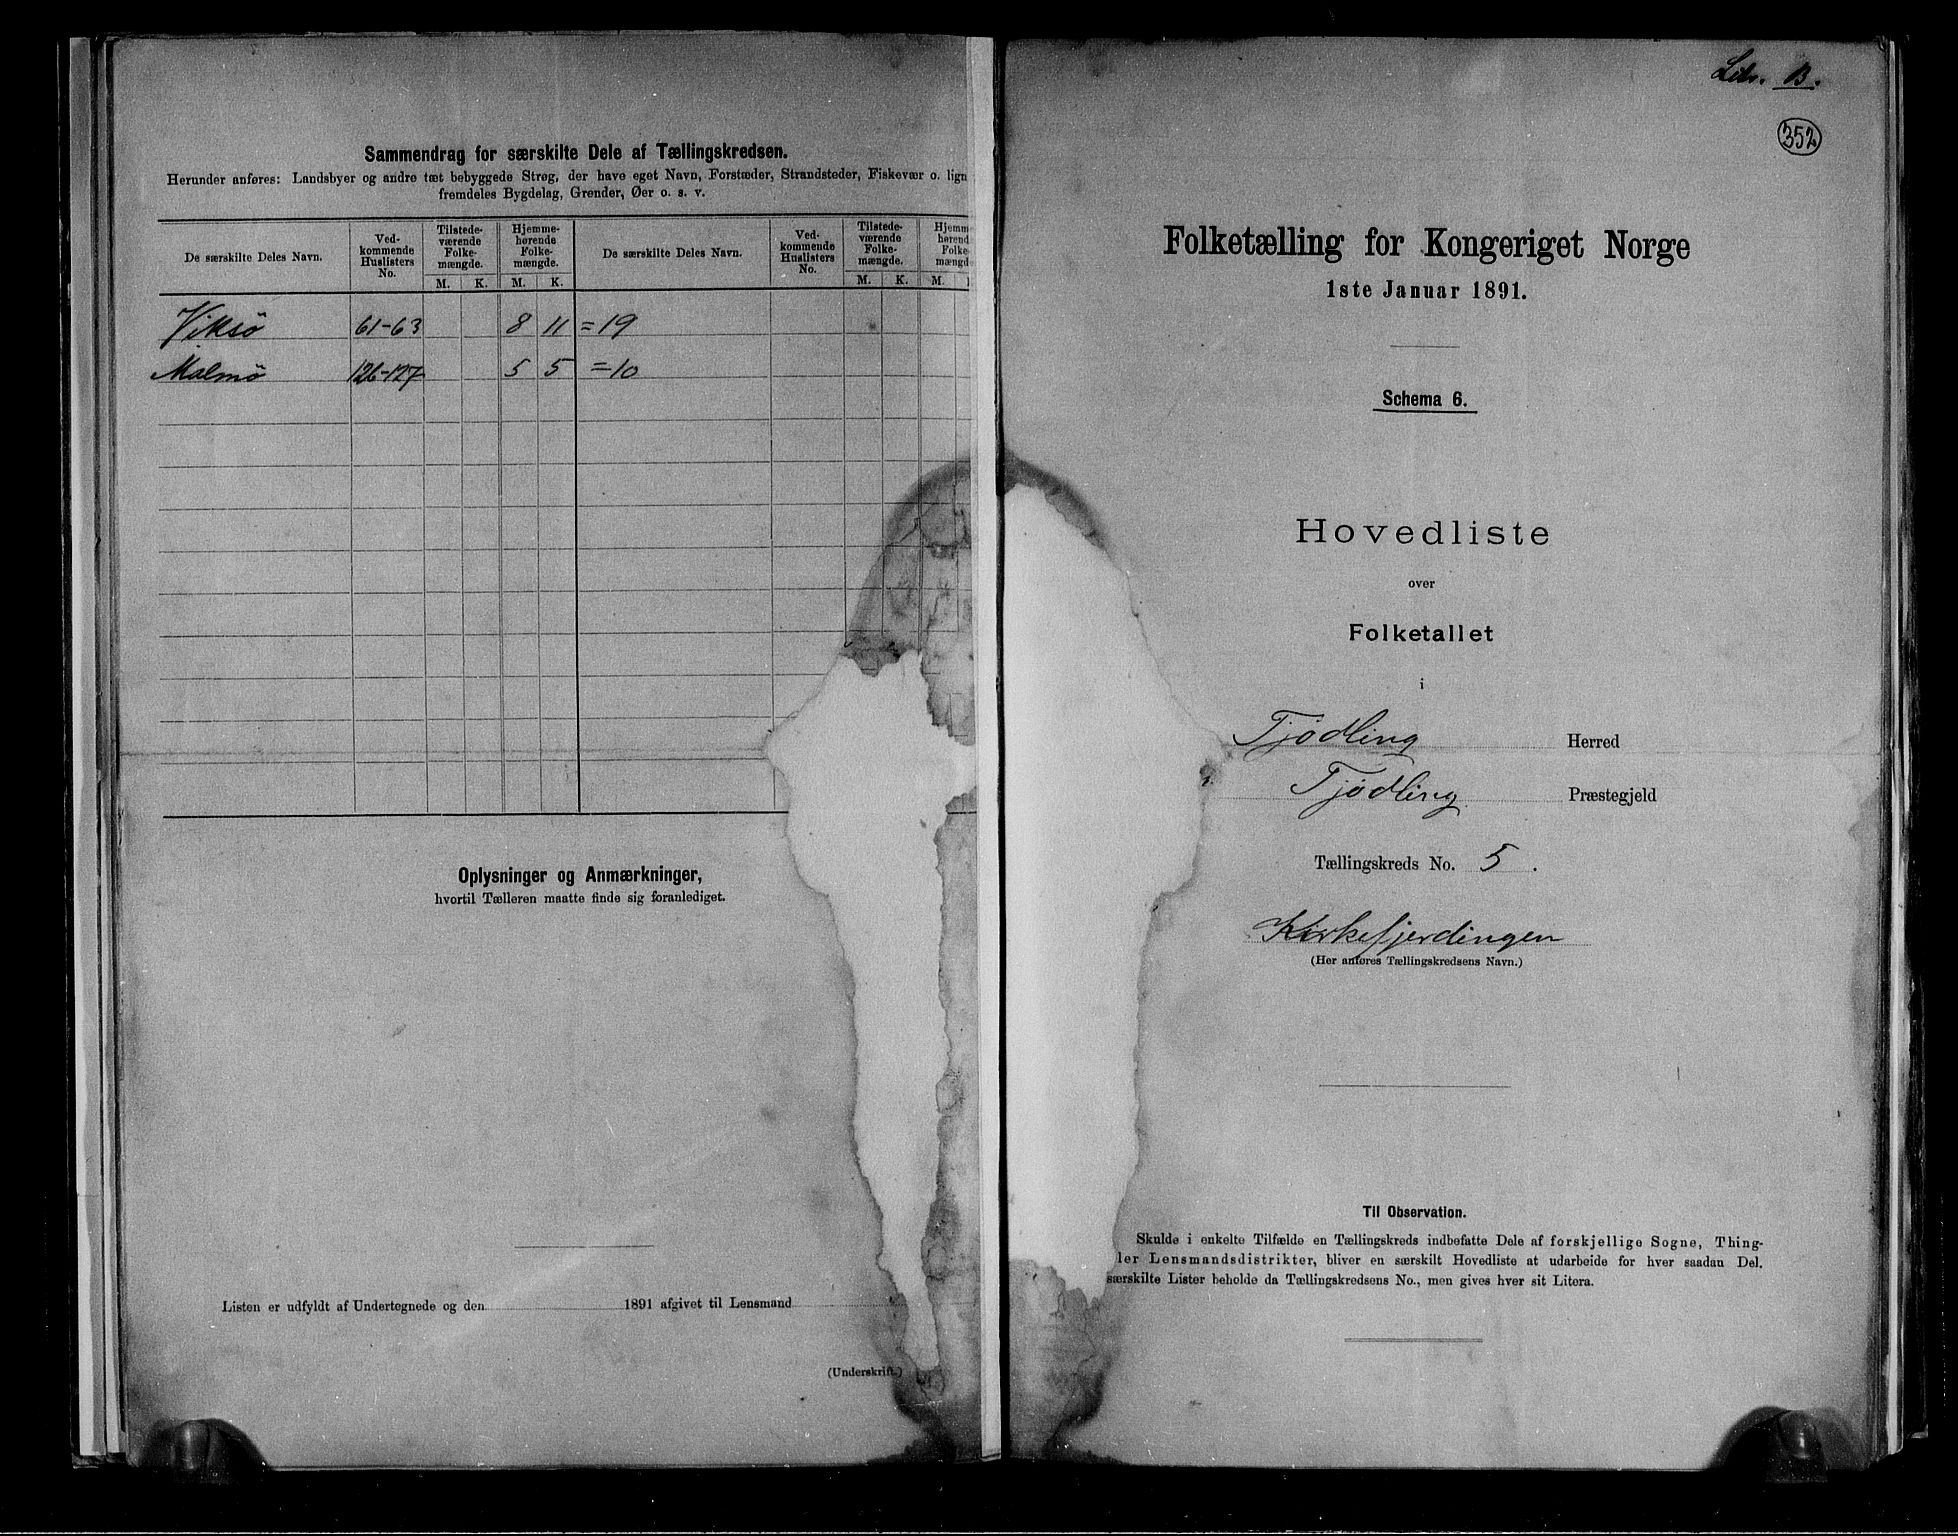 Sammendrag for særskilte Dele af Tællingskredsen.
Herunder anføres: Landsbyer og andre tæt bebyggede Strøg, der have eget Navn, Forstæder, Strandsteder, Fiskevær o. lign
fremdeles Bygdelag, Grender, Øer o. s. v.
De særskilte Deles Navn. Ved-kommende Huslisters No. Tilstede-værende Folke-mængde. Hjemme-hørende Folke-mængde. De særskilte Deles Navn. Ved-kommende Huslisters No. Tilstede-værende Folke-mængde. Hjemm hørend Folke- mængde
M. K. M. K. M. K. M.
Viksö 61-63 8 11 = 19
Malmö 126-127 5 5 = 10
Oplysninger og Anmærkninger,
hvortil Tælleren maatte finde sig foranlediget.
Listen er udfyldt af Undertegnede og den 1891 afgivet til Lensmand
(Underskrift.)
Litr. B.
352
Folketælling for Kongeriget Norge
1ste Januar 1891.
Schema 6.
Hovedliste
over
Folketallet
i
Tjødling Herred
Tjødling Præstegjeld
Tællingskreds No. 5.
Kirkefjerdingen
(Her anføres Tællingskredsens Navn.)
Til Observation.
Skulde i enkelte Tilfælde en Tællingskreds indbefatte Dele af forskjellige Sogne, Thing-
ler Lensmandsdistrikter, bliver en særskilt Hovedliste at udarbeide for hver saadan Del.
særskilte Lister beholde da Tællingskredsens No., men gives hver sit Litera.